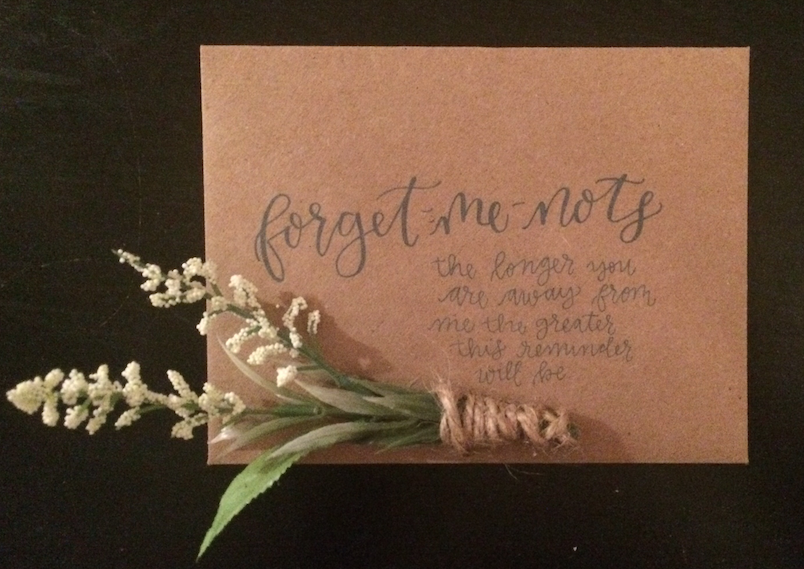 forget-me-nots
the longer you
are away from
me the greater
this reminder
will be